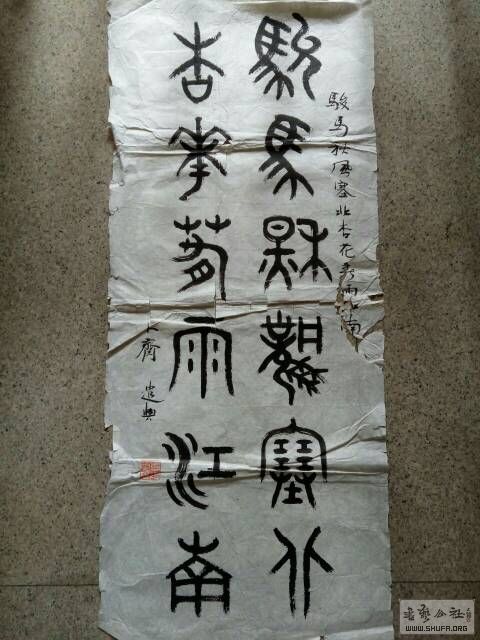 駿馬秋風塞北杏花春雨江南
駿馬秋風塞北
杏花春雨江南
书艺公社
WWW.SHUFA.ORG